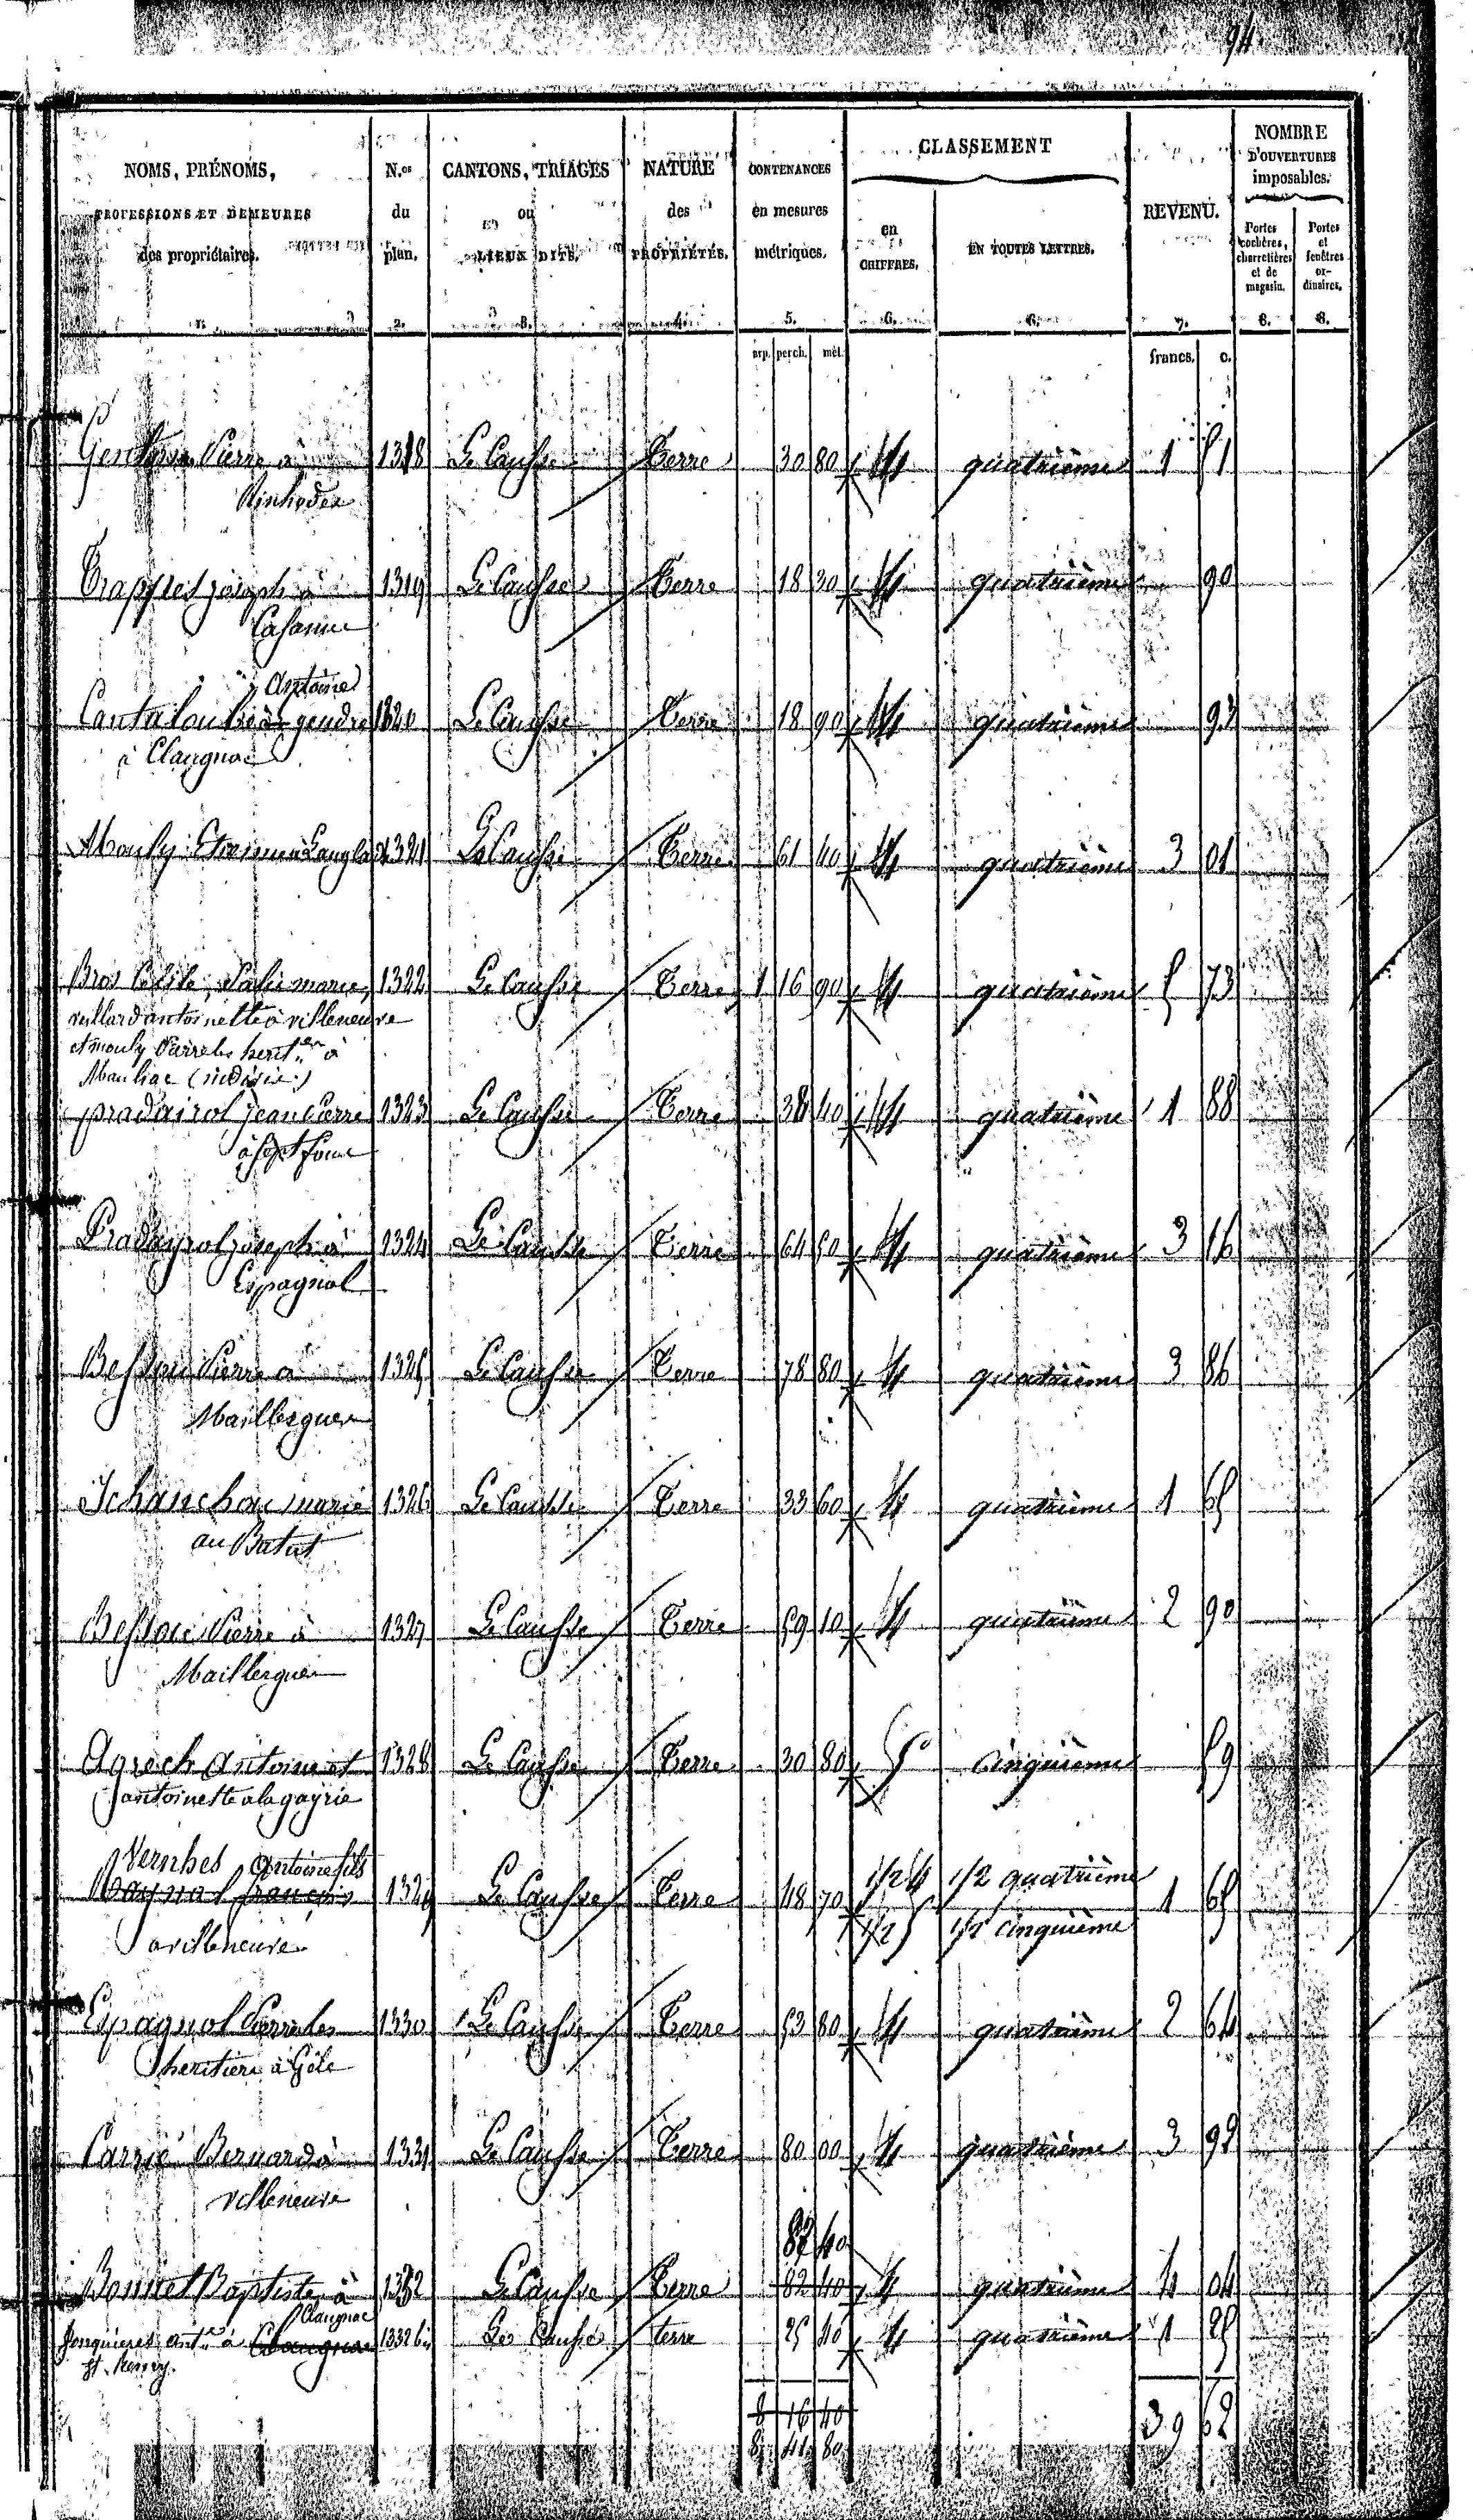 94
NOMS, PRÉNOMS, PROFESSIONS ET DEMEURES des propriétaires. N.os du plan. CANTONS, TRIAGES ou LIEUX DITS. NATURE des PROPRIÉTÉS. CONTENANCES en mesures métriques. CLASSEMENT en CHIFFRES. EN TOUTES LETTRES. REVENU. NOMBRE D'OUVERTURES imposables. Portes cochères, charretières et de magasin. Portes et fenêtres ordinaires.
1. 2. 3. 4. 5. 6. 6. 7. 8. 8.
arp. perch. mèt. francs. c.
Pierre à 1318 Le Causse Terre 30 80 4 quatrième 1 51
joseph à 1319 Le Causse Terre 18 30 4 quatrième 90
Antoine
gendre 1320 Le Causse Terre 18 90 4 quatrième 93
à Claugnac
Mouly Etienne à Langlade 1321 Le Causse Terre 61 40 4 quatrième 3 01
Bros marie, 1322 Le Causse Terre 1 16 90 4 quatrième 5 73
veillard antoinette à villeneuve
et mouly Pierre les herit.ers à
Mauliac (indivis)
pradairol jean Pierre 1323 Le Causse Terre 38 40 4 quatrième 1 88
à Septfons
Pradayrol joseph à 1324 Le Causse Terre 64 50 4 quatrième 3 16
Espagnol
Pierre à 1325 Le Causse Terre 78 80 4 quatrième 3 86
Maillergues
marie 1326 Le Causse Terre 33 60 4 quatrième 1 65
au Batut
Pierre à 1327 Le Causse Terre 59 10 4 quatrième 2 90
Maillergues
Agrech Antoine et 1328 Le Causse Terre 30 80 5 cinquième 59
antoinette a la gayrie
Vernhes Antoine fils
Raynal françois 1329 Le Causse Terre 48 70 1/2 4 1/2 quatrième 1 65
a villeneuve 1/2 5 1/2 cinquième
Espagnol Pierre les 1330 Le Causse Terre 53 80 4 quatrième 2 64
heritiers à Gèle
Carrié Bernard à 1331 Le Causse Terre 80 00 4 quatrième 3 92
villeneuve
82 40
Bonnet Baptiste à 1332 Le Causse Terre 82 40 4 quatrième 4 04
Claugnac
Jonquieres ant.ne à Claugnac 1332 bis Le Causse terre 25 40 4 quatrième 1 25
St. Remy.
8 16 40
8 41 80 39 62